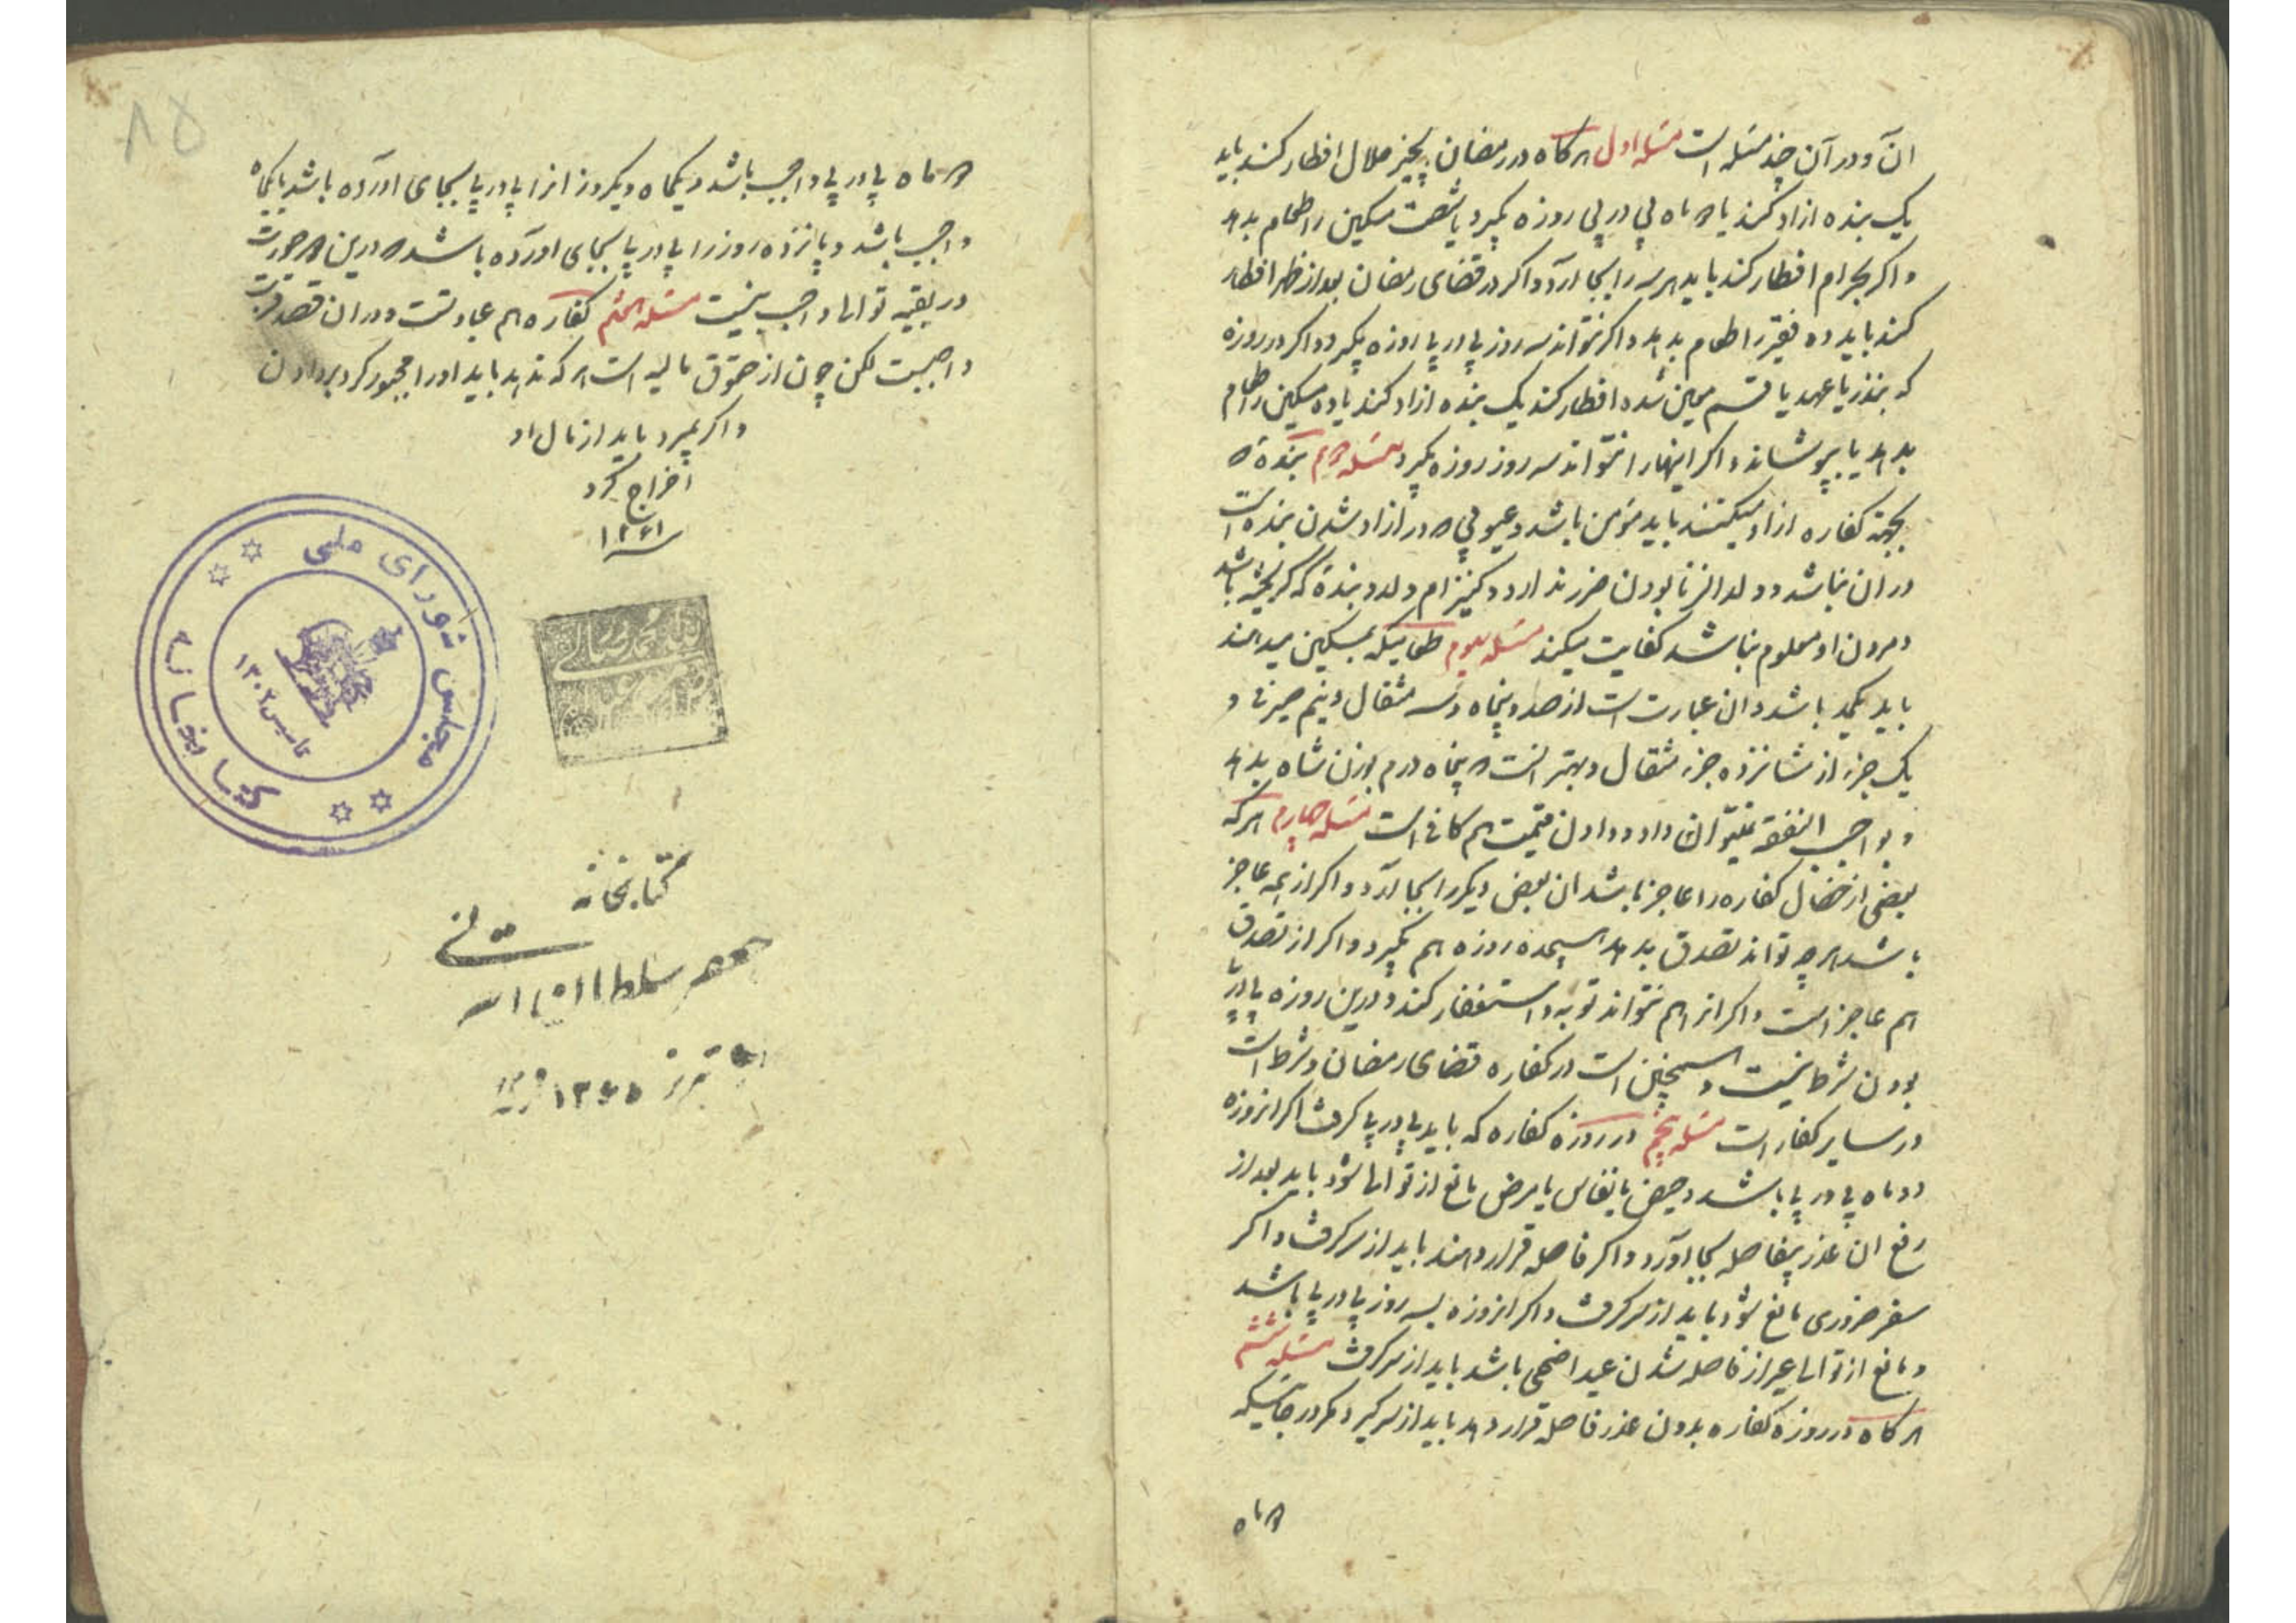 آن و در آن چند مسئله است مسئله اول هرگاه در رمضان بچیز حلال افطار کند باید
یک بنده ازاد کند یا دو ماه پی در پی روزه بگیرد یا شصت مسکین را طعام بدهد
و اگر بحرام افطار کند باید هر سه را بجا آرد و اگر در قضای رمضان بعد از ظهر افطار
کند باید ده فقیر را طعام بدهد و اگر نتواند سه روز پی در پی روزه بگیرد و اگر در روزه
که بنذر یا عهد یا قسم معین شده افطار کند یک بنده ازاد کند یا ده مسکین را طعام
بدهد یا بپوشاند و اگر اینها را نتواند سه روز روزه بگیرد مسئله دوم بنده که
بجهة کفاره ازاد میکنند باید مؤمن باشد و عیوبی که در ازاد شدن بنده است
در ان نباشد و ولد الزنا بودن ضرر ندارد و کنیز ام ولد و بنده که گریخته باشد
و مردن او معلوم نباشد کفایت میکند مسئله سیوم طعامیکه بمسکین میدهند
باید یکمد باشد و ان عبارت است از صد و پنجاه و سه مثقال و نیم صیرفی و
یک جزء از شانزده جزء مثقال و بهتر انست که پنجاه درم بوزن شاه بدهد
و بواجب النفقه نمیتوان داد و دادن قیمت هم کافی است مسئله چهارم هر که
بعضی از خصال کفاره را عاجز باشد ان بعض دیگر را بجا آرد و اگر از همه عاجز
باشد هر چه تواند تصدق بدهد هیجده روزه هم بگیرد و اگر از تصدق
هم عاجز است و اگر انرا هم نتواند توبه و استغفار کند و درین روزه پی در پی
بودن شرط نیست و همچنین است در کفاره قضای رمضان و شرط است
در سایر کفارات مسئله پنجم در روزه کفاره که باید پی در پی گرفت اگر انروزه
دو ماه پی در پی باشد و حیض یا نفاس یا مرض مانع از توالی شود باید بعد از
رفع ان عذر بیفاصله بجا آورد و اگر فاصله قرار دهند باید از سر گرفت و اگر
سفر ضروری مانع شود باید از سر گرفت و اگر انروزه سه روز پی در پی باشد
و مانع از توالی غیر از فاصله شدن عید اضحی باشد باید از سر گرفت مسئله ششم
هرگاه در روزه کفاره بدون عذر فاصله قرار دهد باید از سر گیرد مگر در جائیکه
دو ماه
۸۵
دو ماه پی در پی واجب باشد و یکماه و یکروز انرا پی در پی بجای اورده باشد یا یکماه
واجب باشد و پانزده روز را پی در پی بجای اورده باشد که درین دو صورت
در بقیه توالی واجب نیست مسئله هفتم کفاره هم عبادتست و در ان قصد قربت
واجبست لکن چون از حقوق مالیه است هر که ندهد باید او را مجبور کرد بر دادن
و اگر بمیرد باید از مال او
اخراج کرد
سنه ۱۲۶۱
کتابخانه مجلس شورای ملی
تاسیس ۱۳۰۲
کتابخانه
جعفر سلطان القرائی
تبریز ۱۳۶۵ قمریه